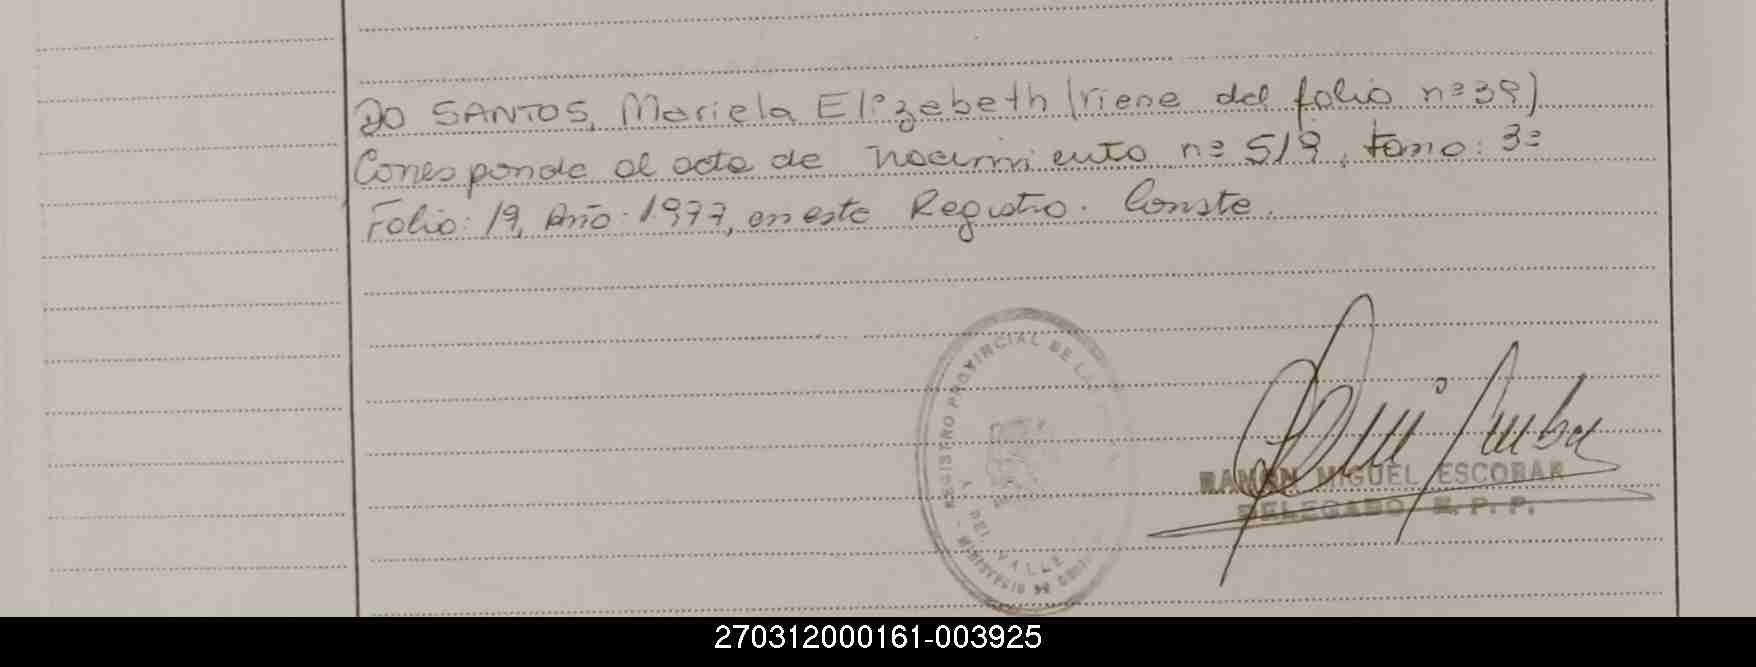 DO SANTOS, Mariela Elizabeth (viene del folio nº 39)
Corresponde al acta de nacimiento nº 519, tomo: 3º
Folio: 19, Año: 1977, en este Registro. Conste.
REGISTRO PROVINCIAL DE LAS
DEL VALLE
RAMON MIGUEL ESCOBAR
DELEGADO R. P. P.
270312000161-003925